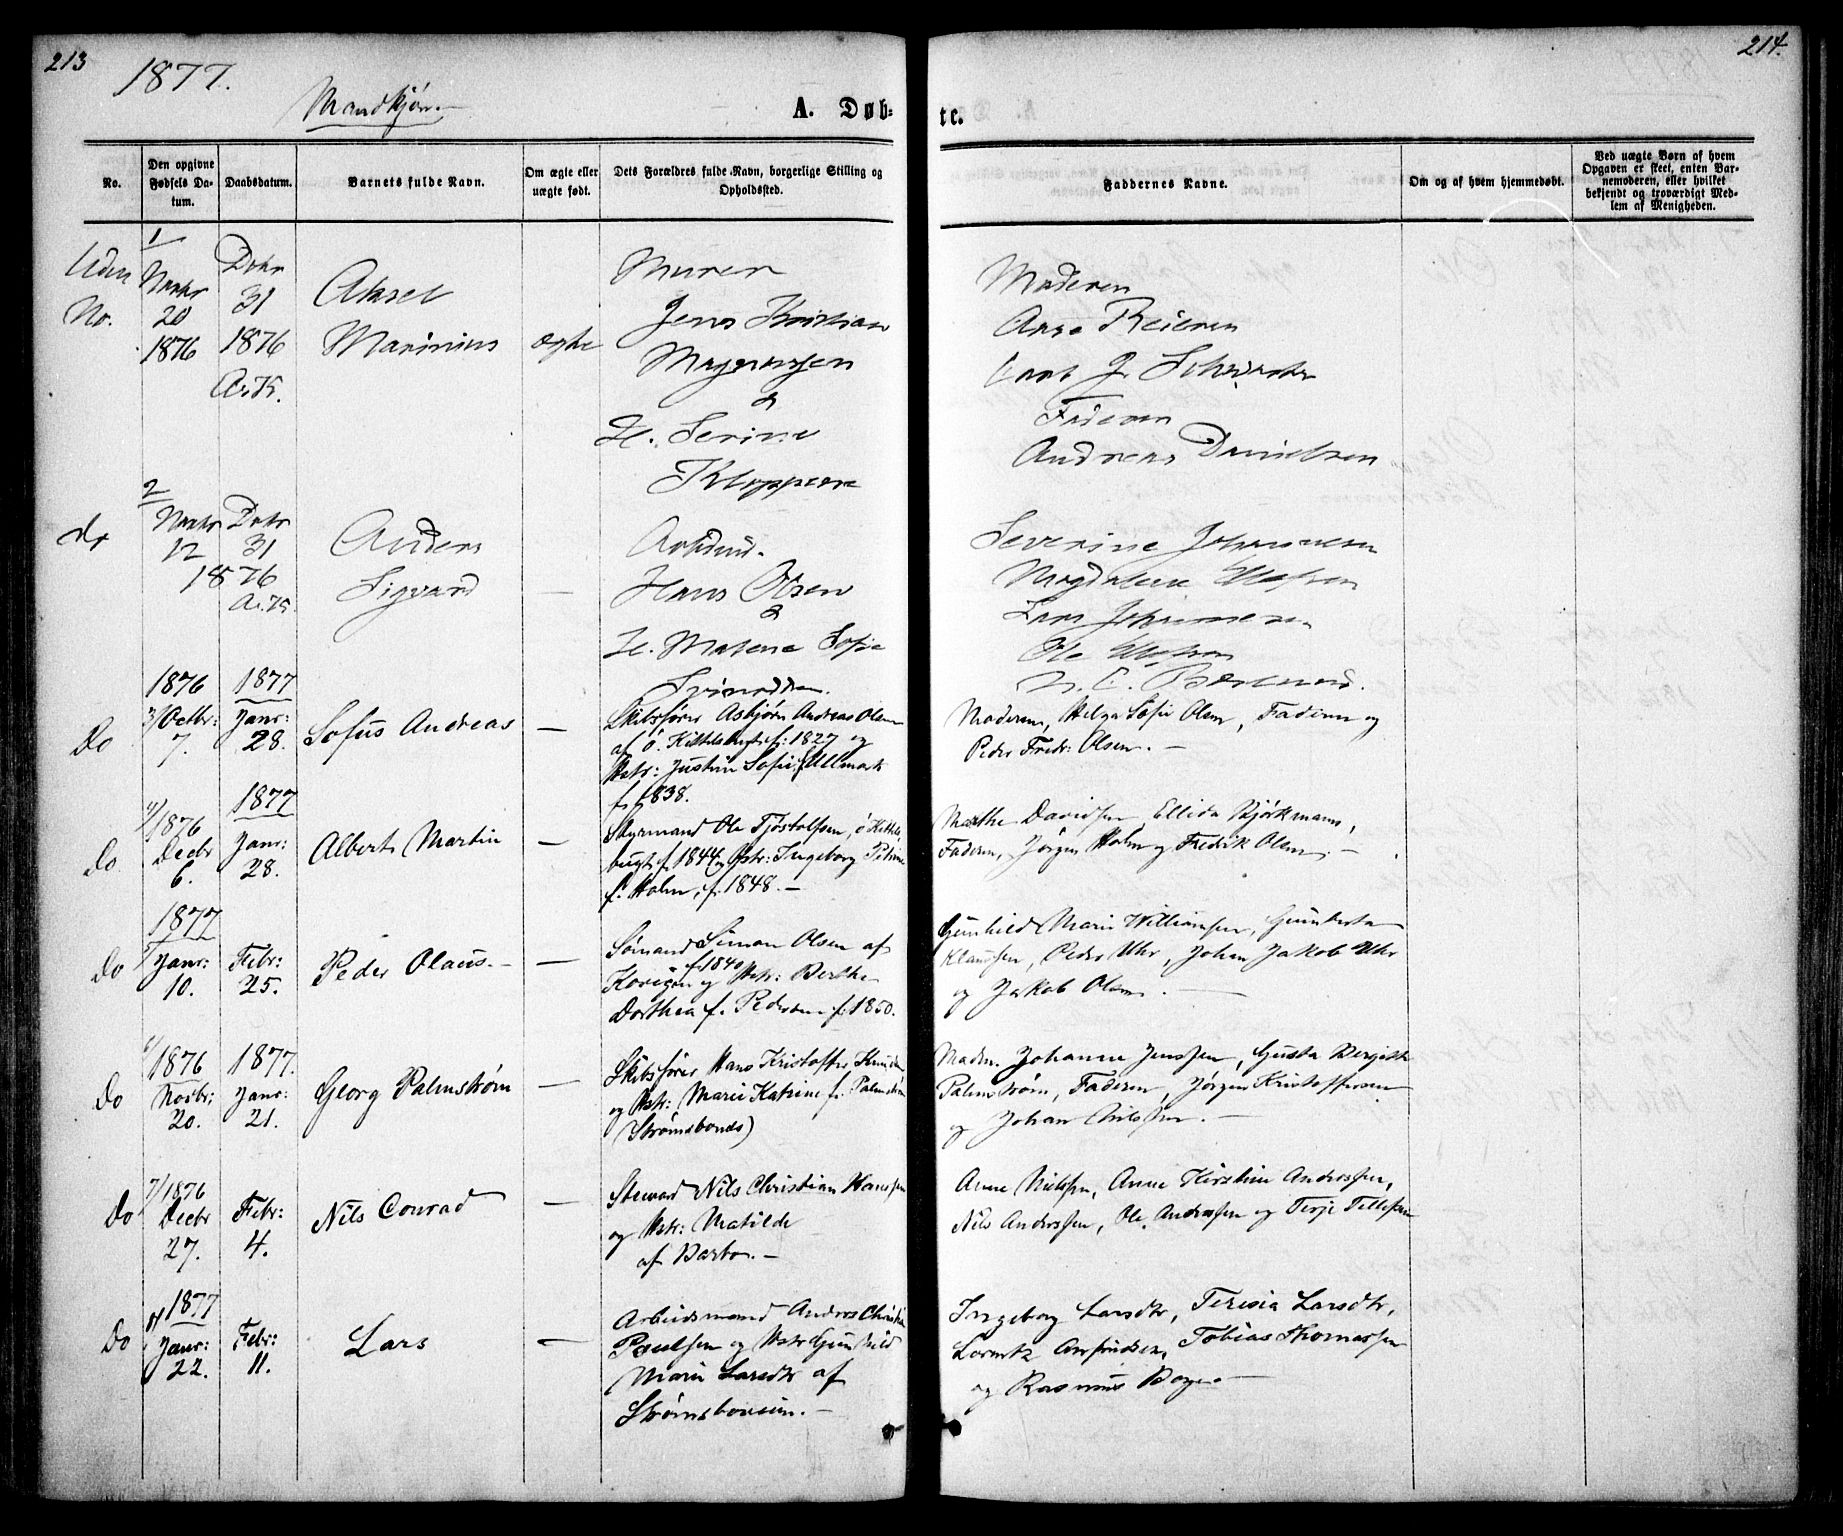 213
1877.
Mandkjøn.
A. Døb-
te.
214.
No.
Den opgivne Fødsels Datum.
Daabsdatum.
Barnets fulde Navn.
Om ægte eller uægte født.
Dets Forældres fulde Navn, borgerlige Stilling og Opholdssted.
Faddernes Navne.
Om og af hvem hjemmedøbt.
Ved uægte Børn af hvem Opgaven er skeet, enten Barnemoderen, eller hvilket bekjendt og troværdigt Medlem af Menigheden.
Uden No.
1
20
1876
31
1876
Aksel
Marinius
ægte
Murer
Jens Kristian
&
H. Serine
Moderen
Faderen
Andreas Danielsen
2
Do
12
31
1876
Anders
Sigvard
—
Hans Olsen
&
H. Malene Sofie
Severine
Magdalene
Lars
Ole
Do
1876
3/ Octbr:
7.
1877
Janr:
28.
Sofus Andreas
—
Skibsfører Asbjørn Andreas Olsen
af ø. Kittelsbugt f: 1827 og
Hstr: Justine Sofie f. Ullmark
f. 1838.
Moderen, Helga Sofie Olsen, Faderen og
Peder Fredr: Olsen. —
Do
4/ 1876
Decbr
6.
1877
Janr:
28.
Albert Martin
—
Styrmand Ole Tjøstolfsen, ø Kittels-
bugt f. 1844 og Hstr: Ingeborg Petrine
f. Holm, f. 1848. —
Marthe Davidsen, Ellida Bjørkmann,
Faderen, Jørgen Holm og Fredrik Olsen. —
Do
1877
5/ Janr:
10.
Febr:
25.
Peder Olaus. —
—
Sømand Simon Olsen af
f 1840
og Hstr: Berthe
Dorthea f. Pedersen f: 1850.
Gunhild Marie Williamsen,
Klausen, Peder Uhr, Johan Jakob Uhr
og Jakob Olsen. —
Do
6/ 1876
Novbr:
20.
1877.
Janr:
21.
Georg Palmstrøm
—
Skibsfører Hans Kristoffer Knudsen
og Hstr: Marie Katrine f. Palmstrøm
Strømsbonds)
Moderen, Johanne Jenssen, Gusta Bergitte
Palmstrøm, Faderen, Jørgen Kristoffersen
og Johan Nilssen. —
Do
7/ 1876
Decbr
27.
Febr:
4.
Nils Conrad
—
Steward Nils Christian Hanssen
og Hstr: Matilde
af Barbo. —
Anne Nielsen, Anne Kirstine Andersen,
Nils Anderssen, Ole Anderssen og Terje Tellefsen
Do
8/ 1877
Janr:
22.
Febr:
11.
Lars
—
Arbeidsmand Anders Christian
Paulsen og Hstr Gunhild
Marie Larsdtr af
Ingeborg Larsdtr, Teresia Larsdtr,
Tobias Thomassen
og Rasmus